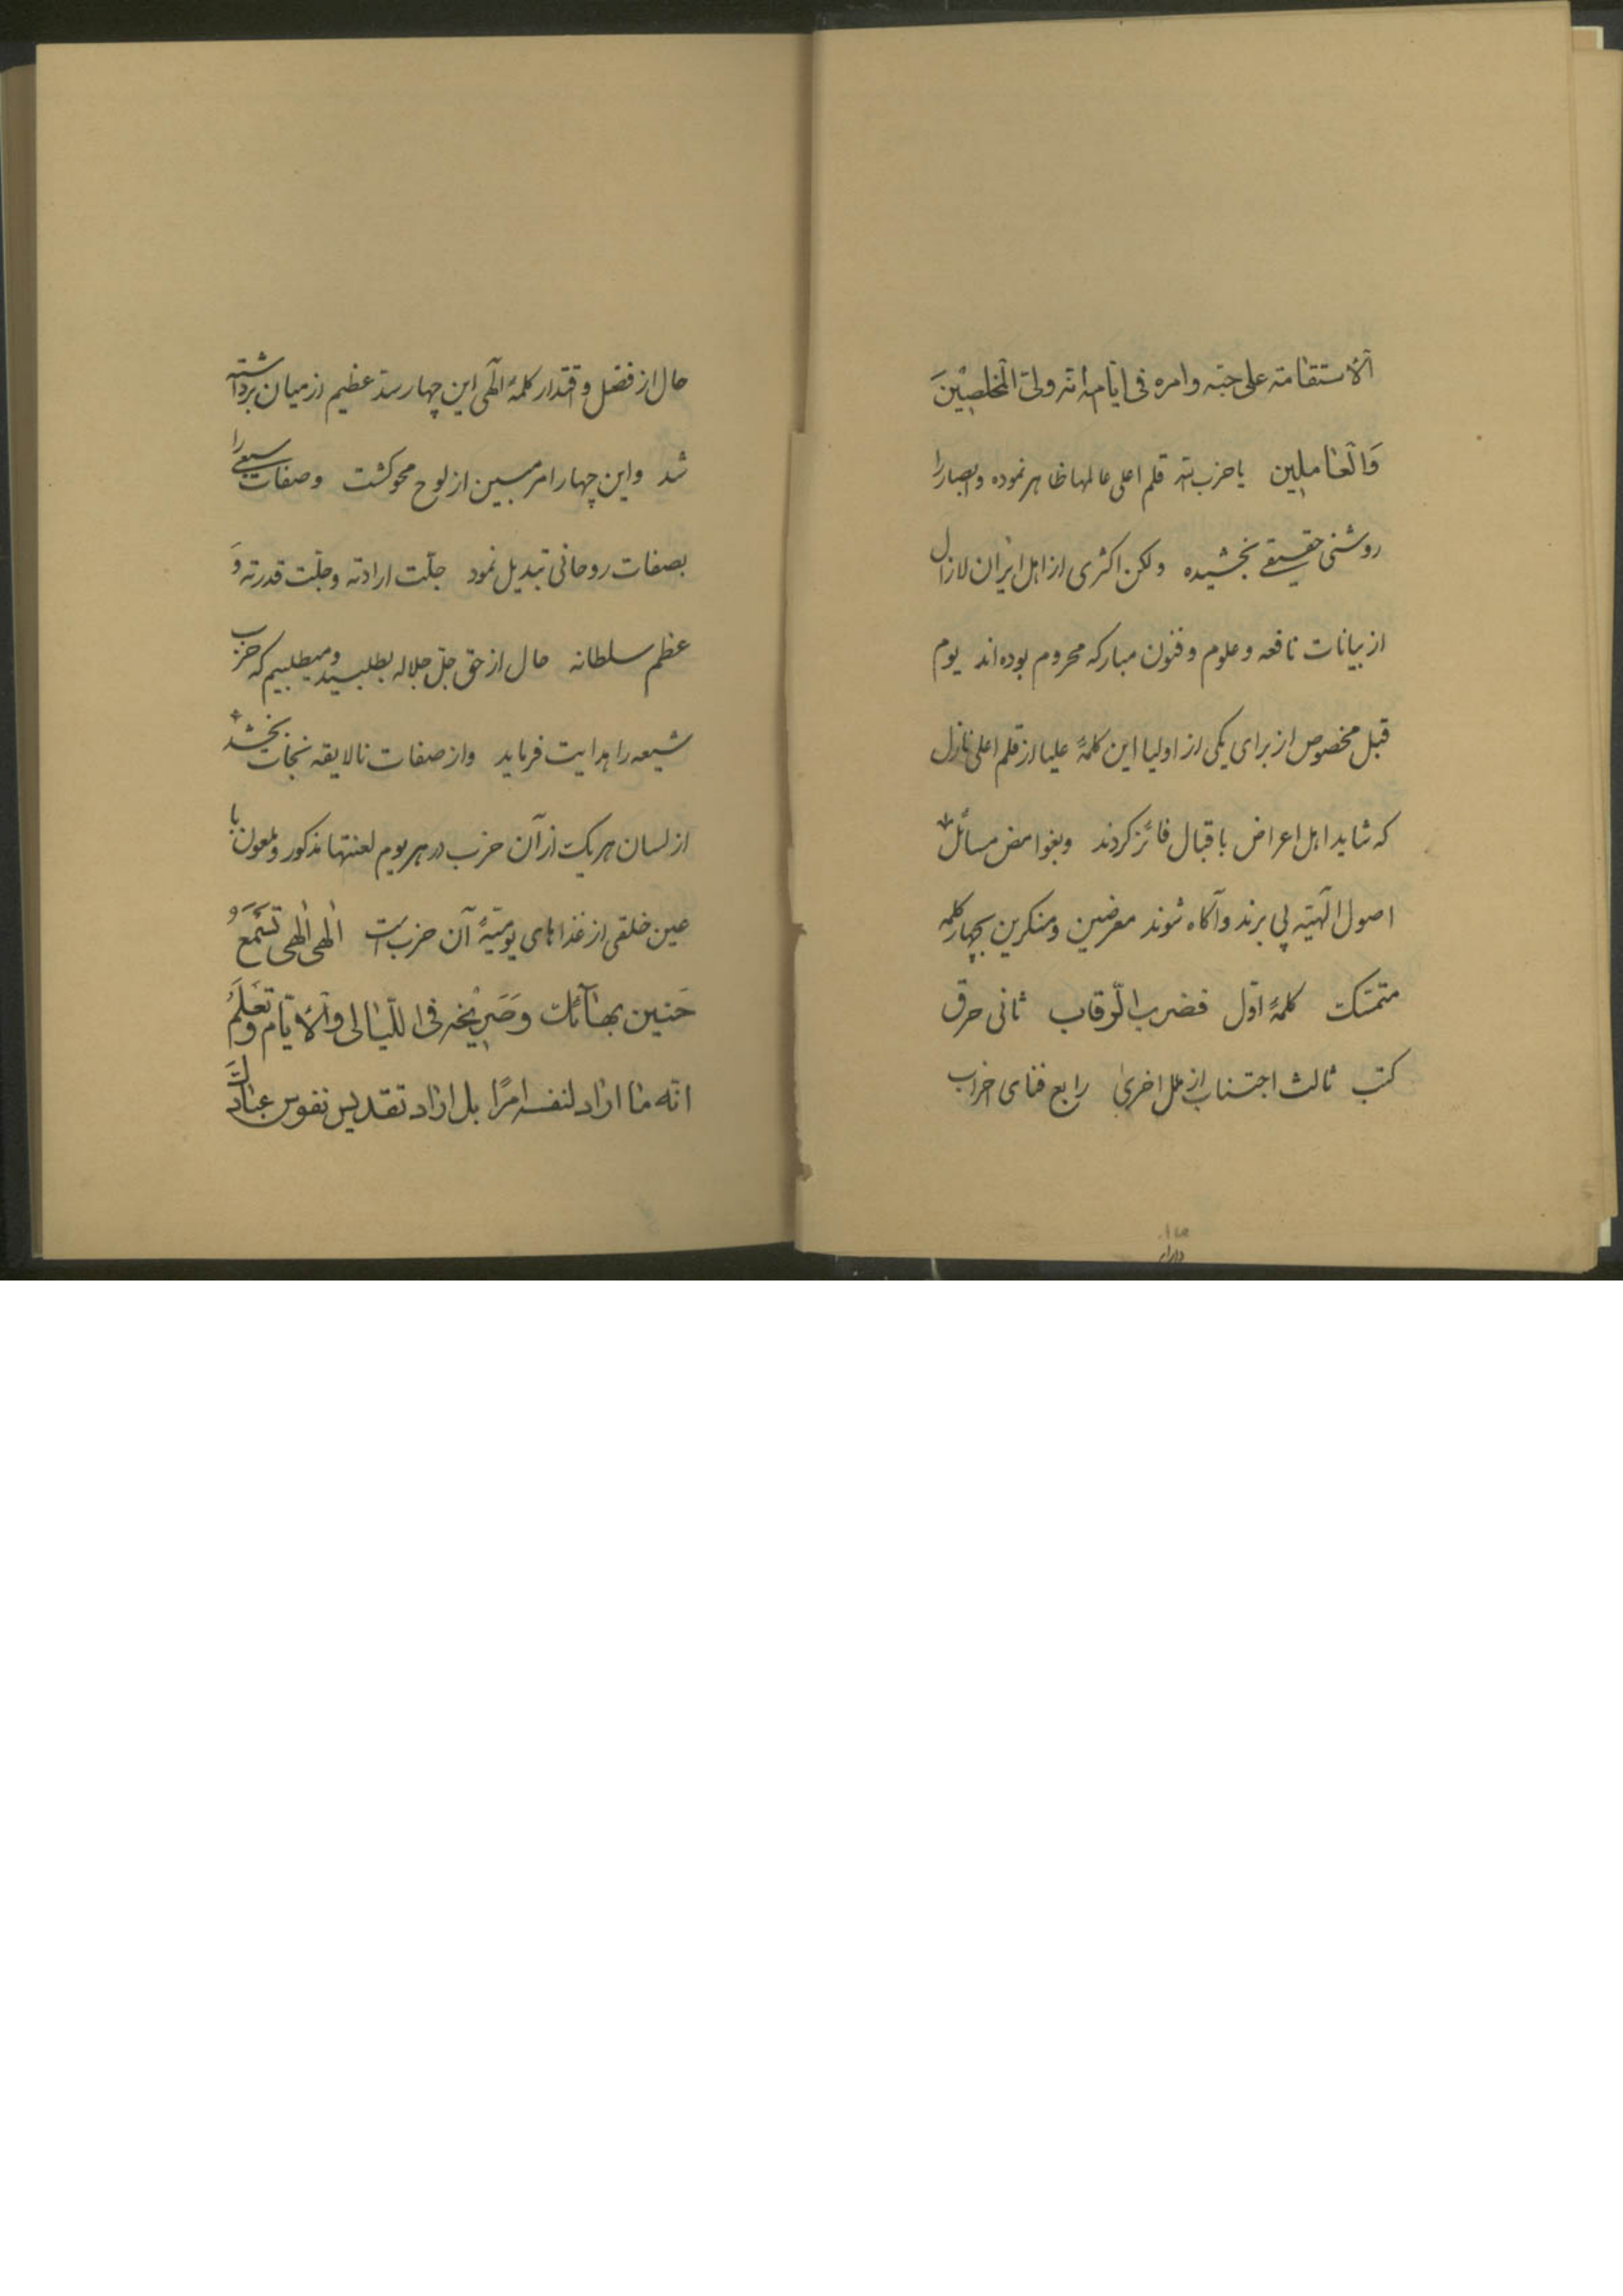 الاستقامة علی حبّه و امره فی ایّامه انّه ولیّ المخلصین
وَالعاملین یا حزب الله قلم اعلی عالمها ظاهر نموده و ابصار را
روشنی حقیقی بخشیده ولکن اکثری از اهل ایران لازال
از بیانات نافعه و علوم و فنون مبارکه محروم بوده‌اند یوم
قبل مخصوص از برای یکی از اولیا این کلمهٔ علیا از قلم اعلی نازل
که شاید اهل اعراض باقبال فائز گردند و بغوامض مسائل
اصول الهیّه پی برند و آگاه شوند معرضین و منکرین بچهار کلمه
متمسّک کلمهٔ اوّل فضرب الرّقاب ثانی حرق
کتب ثالث اجتناب از ملل اخری رابع فنای احزاب
حال از فضل و اقتدار کلمهٔ الهی این چهار سدّ عظیم از میان برداشته
شد و این چهار امر مبین از لوح محو گشت و صفات سبعی را
بصفات روحانی تبدیل نمود جلّت ارادته و جلّت قدرته وَ
عظم سلطانه حال از حق جلّ جلاله بطلبید و میطلبیم که حزب
شیعه را هدایت فرماید و از صفات نالایقه نجات بخشد
از لسان هر یک از آن حزب در هر یوم لعنتها مذکور و ملعون با
عین حلقی از غذاهای یومیّهٔ آن حزب است الهی الهی تَسْمَعُ
حَنین بهآئک وَصَریخه فی اللّیالی و الأیّام و تعلمُ
انّه ما اراد لنفسه امرًا بل اراد تقدیس نفوس عبادک